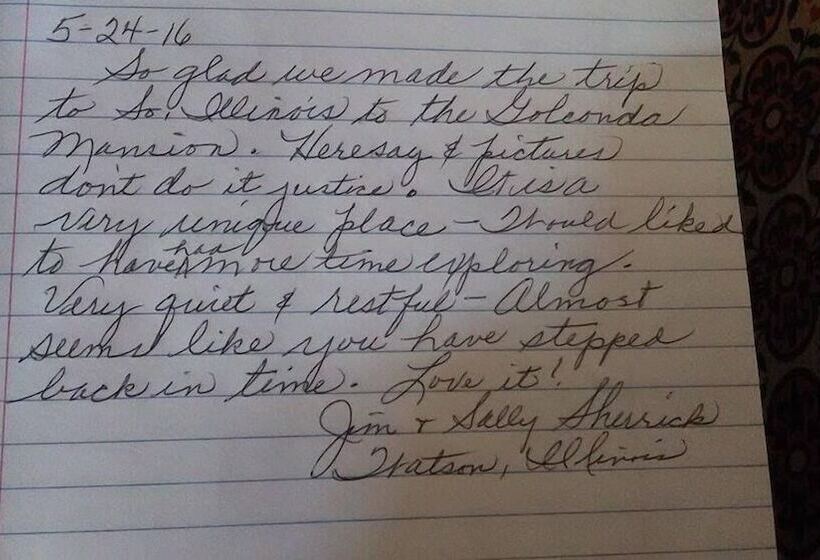 5-24-16
So glad we made the trip
to So. Illinois to the Golconda
Mansion. Heresay & pictures
don't do it justice. It is a
very unique place - Would liked
to have had more time exploring.
Very quiet & restful - Almost
seems like you have stepped
back in time. Love it!
Jim & Sally Sherrick
Watson, Illinois